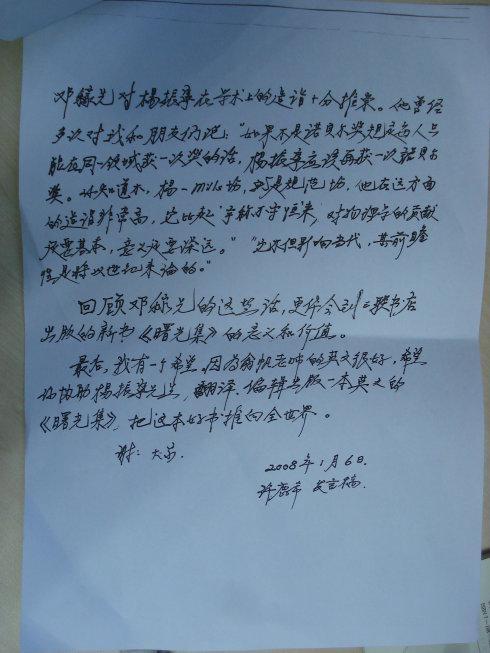 邓稼先对杨振宁在学术上的造诣十分推崇。他曾经
多次对我和朋友们说："如果不是诺贝尔奖规定每人只
能在同一领域获一次奖的话，杨振宁应该再获一次诺贝尔
奖。你知道不，杨—mills场，就是规范场，他在这方面
的造诣非常高，它比起'宇称不守恒'来，对物理学的贡献
还要基本，意义还要深远。""它不但影响当代，其前瞻
性是将以世纪来论的。"
回顾邓稼先的这些话，更体会到三联书店
出版的新书《曙光集》的意义和价值。
最后，我有一个希望，因为翁帆老师的英文很好，希望
你协助杨振宁先生，翻译、编辑出版一本英文的
《曙光集》，把这本好书推向全世界。
谢谢大家.
2008年1月6日.
许鹿希 发言稿.